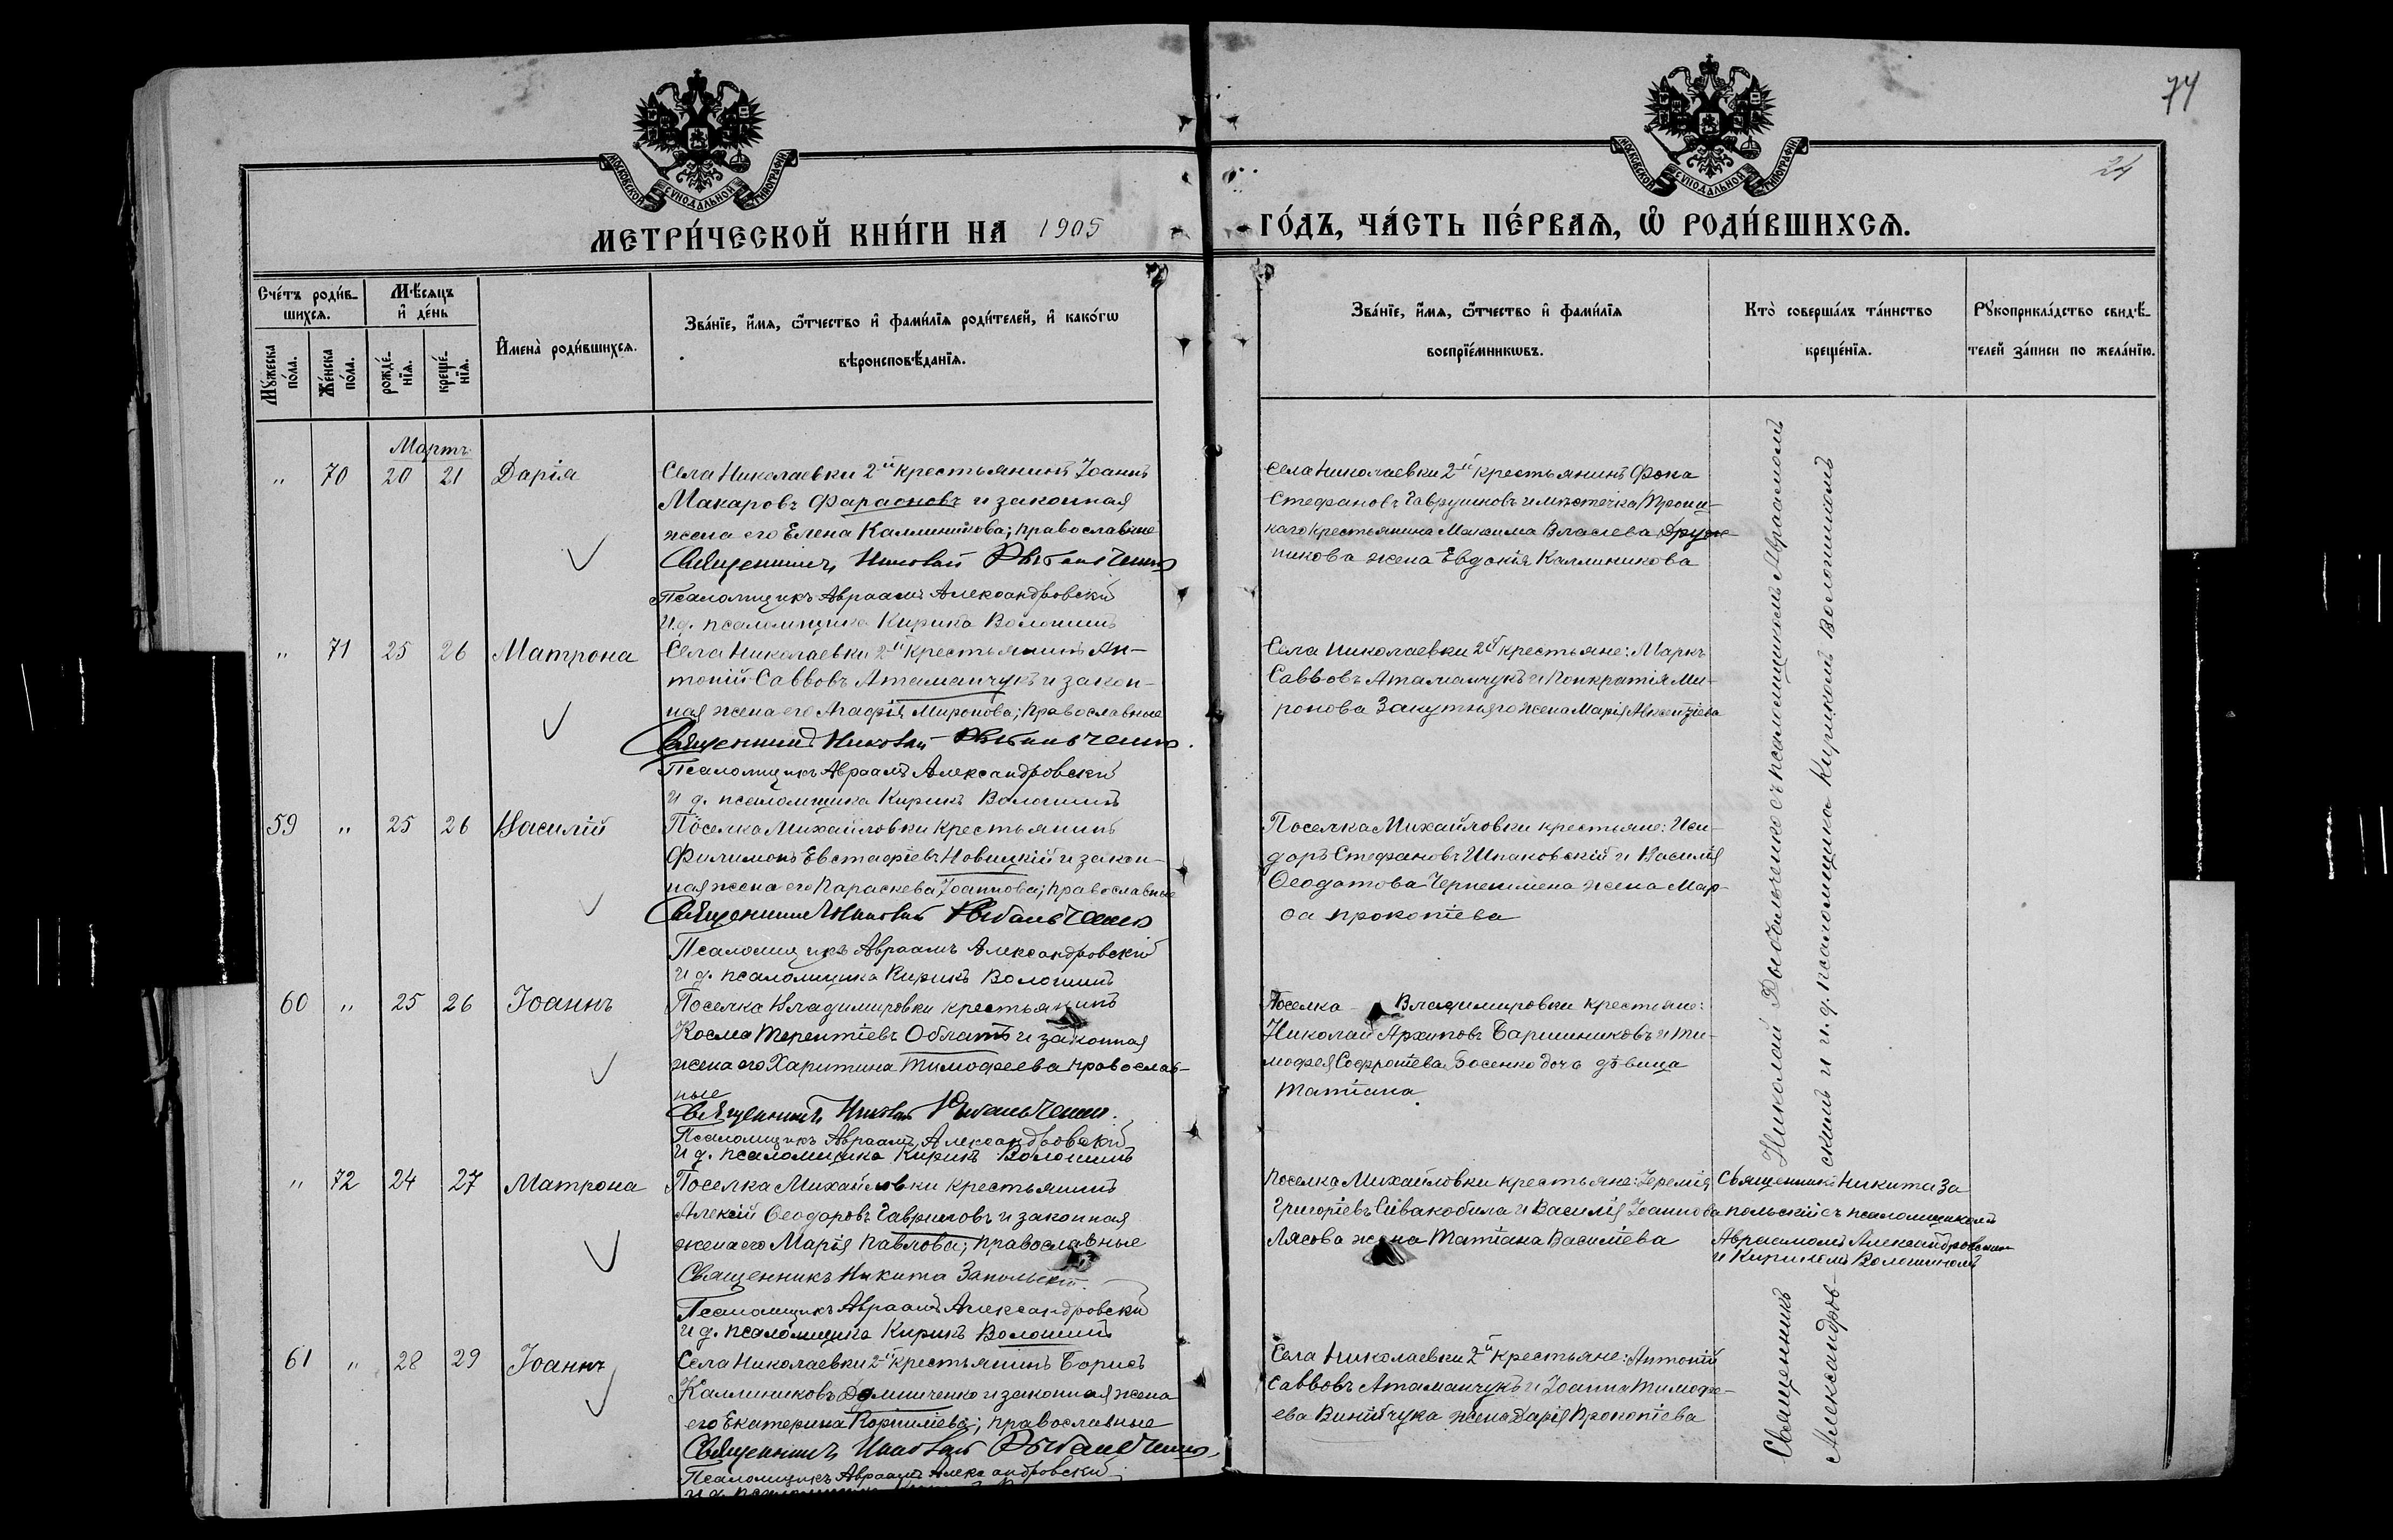 74
24
МОСКОВСКОЙ СѴНОДАЛЬНОЙ ТИПОГРАФІИ
МОСКОВСКОЙ СѴНОДАЛЬНОЙ ТИПОГРАФІИ
МЕТРИ́ЧЕСКОЙ КНИ́ГИ НА 1905
ГО́ДЪ, ЧА́СТЬ ПЕ́РВАѦ, Ѽ РОДИ́ВШИХСѦ.
Сче́тъ роди́в-
шихсѧ.
Мꙋ́жеска по́ла.
Же́нска по́ла.
Мѣ́сѧцъ
и҆ де́нь
рожде́-
нїѧ.
креще́-
нїѧ.
И҆мена̀ роди́вшихсѧ.
Зва́нїе, и҆́мѧ, ѻ҆́тчество и҆ фами́лїѧ роди́телей, и҆ како́гѡ
вѣроисповѣ́данїѧ.
Зва́нїе, и҆́мѧ, ѻ҆́тчество и҆ фами́лїѧ
воспрїе́мникѡвъ.
Кто̀ соверша́лъ та́инство
креще́нїѧ.
Рꙋкоприкла́дство свидѣ́-
телей за́писи по жела́нїю.
Мартъ
" 70 20 21 Дарія
Села Николаевки 2й крестьянинъ Іоаннъ
Макаровъ Фараоновъ и законная
жена его Елена Каллиникова; православные
Священникъ Николай Рыбальченко
Псаломщикъ Авраамъ Александровскій
И.д. псаломщика Кирикъ Волошинъ
Села Николаевки 2й крестьянинъ Фока
Стефановъ Гаврушковъ и мѣстечка Троиц-
каго крестьянина Максима Власіева Друж-
никова жена Евдокія Каллиникова
" 71 25 26 Матрона
Села Николаевки 2й крестьянинъ Ан-
тоній Саввовъ Атаманчукъ и закон-
ная жена его Агафія Миронова; православные
Священникъ Николай Рыбальченко.
Псаломщикъ Авраамъ Александровскій
И д. псаломщика Кирикъ Волошинъ
Села Николаевки 2й крестьяне: Маркъ
Саввовъ Атаманчукъ и Понкратія Ми-
ронова Закутняго жена Марія Авксентіева
59 " 25 26 Василій
Поселка Михайловки крестьянинъ
Филимонъ Евстафіевъ Новицкій и закон-
ная жена его Параскева Іоаннова; православные
Священникъ Николай Рыбальченко
Псаломщикъ Авраамъ Александровскій
И д. псаломщика Кирикъ Волошинъ
Поселка Михайловки крестьяне: Иси-
доръ Стефановъ Шпаковскій и Василія
Ѳеодотова жена Мар-
ѳа Прокопіева
60 " 25 26 Іоаннъ
Поселка Владимировки крестьянинъ
Косма Терентіевъ Облатъ и законная
жена его Харитина Тимофеева православ-
ные
Священникъ Николай Рыбальченко.
Псаломщикъ Авраамъ Александровскій
И д. псаломщика Кирикъ Волошинъ
Поселка Владимировки крестьяне:
Николай Архиповъ Баришниковъ и Ти-
мофея Софроніева Босенко дочь дѣвица
Татіана.
" 72 24 27 Матрона
Поселка Михайловки крестьянинъ
Алексій Ѳеодоровъ Гавриловъ и законная
жена его Марія Павлова; православные
Священникъ Никита Запольскій
Псаломщикъ Авраамъ Александровскій
И д. псаломщика Кирикъ Волошинъ
Поселка Михайловки крестьяне: Іеремія
Григоріевъ Сивакобила и Василія Іоаннова
Лясова жена Татіана Василіева
Священникъ Никита За
польскій съ псаломщикомъ
Авраамомъ Александровскимъ
и Кирикомъ Волошиномъ
61 " 28 29 Іоаннъ
Села Николаевки 2й крестьянинъ Борисъ
Каллиниковъ и законная жена
его Екатерина Корниліева; православные
Священникъ Николай Рыбальченко.
Псаломщикъ Авраамъ Александровскій
Села Николаевки 2й крестьяне: Антоній
Саввовъ Атаманчукъ и Іоанна Тимофе-
ева Винійчука жена Дарія Прокопіева
Священникъ Николай Рыбальченко съ псаломщикомъ Авраамомъ
Александров- скимъ и и.д. псаломщика Кирикомъ Волошиномъ